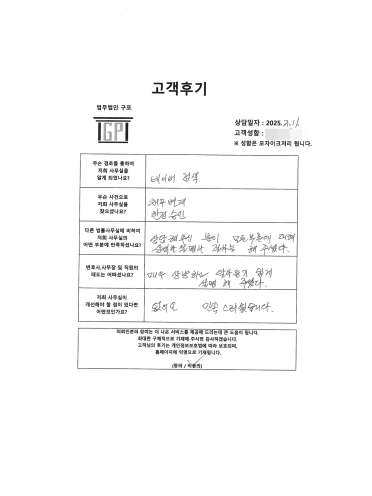 고객후기
법무법인 구포
GP
상담일자 : 2025. 2. 11.
고객성함 :
※ 성함은 모자이크처리 됩니다.
무슨 경로를 통하여
저희 사무실을
알게 되었나요?
네이버 검색
무슨 사건으로
저희 사무실을
찾으셨나요?
채무변제
한정승인
다른 법률사무실에 비하여
저희 사무실의
어떤 부분에 만족하셨나요?
상담 해주신 분이 모든 부분에 대해
설명과 친절하게 해 주셨다.
변호사,사무장 및 직원의
태도는 어떠셨나요?
매우 상냥하고 알아듣기 쉽게
설명 해 주셨다.
저희 사무실이
개선해야 할 점이 있다면
어떤것인가요?
없어요 만족스러웠습니다.
의뢰인분의 참여는 더 나은 서비스를 제공해 드리는데 큰 도움이 됩니다.
최대한 구체적으로 기재해 주시면 감사하겠습니다.
고객님의 후기는 개인정보보호법에 따라 보호되며,
홈페이지에 익명으로 기재됩니다.
(동의 / 비동의)